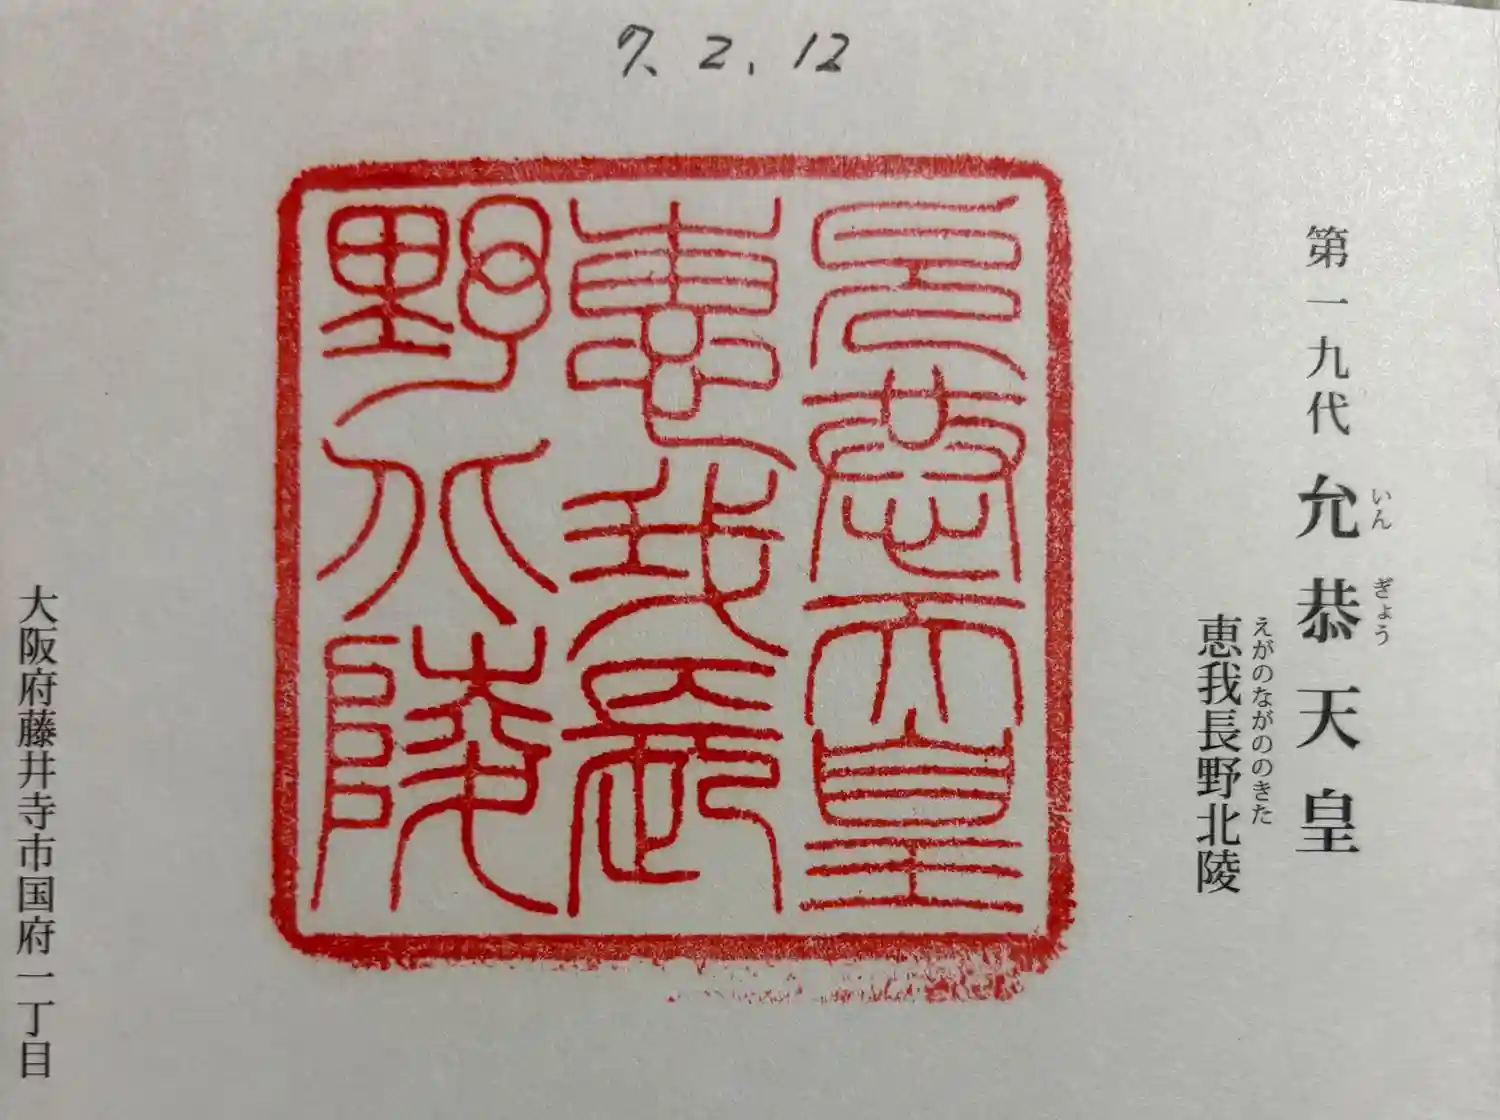 7.2.12
第一九代 允恭天皇
いん ぎょう
恵我長野北陵
えがのながののきた
允恭天皇
惠我長
野北陵
大阪府藤井寺市国府一丁目